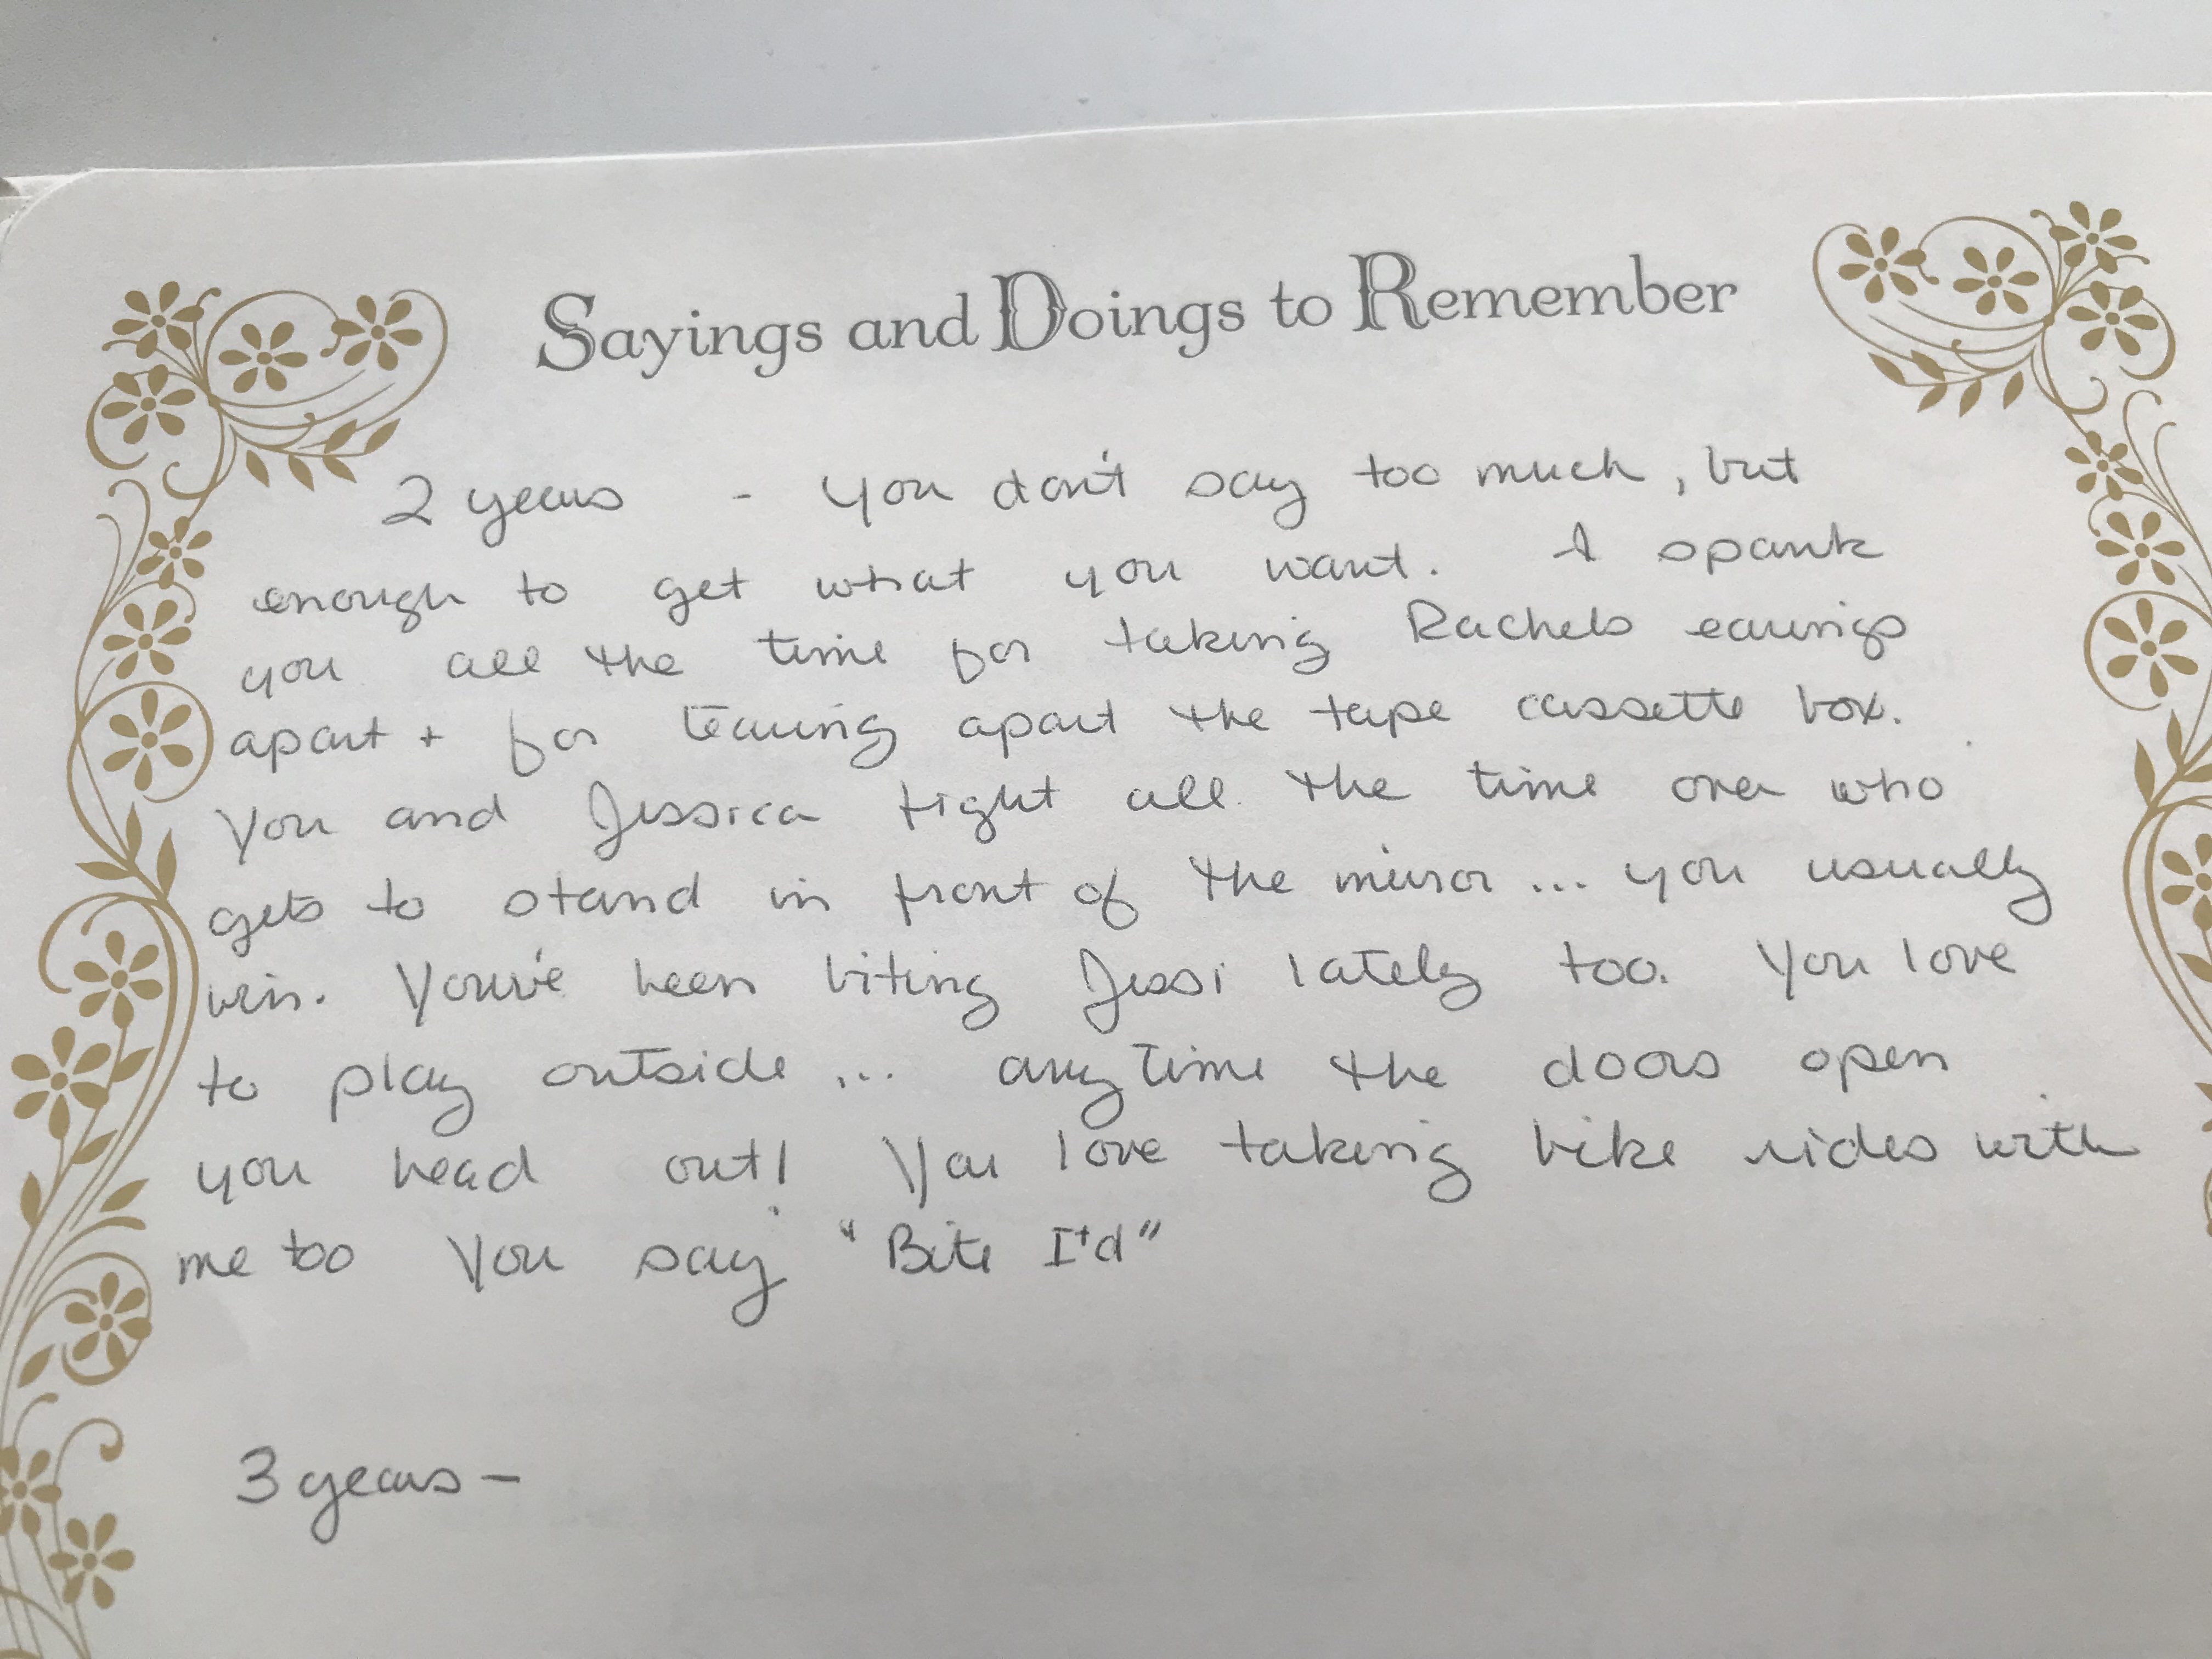 Sayings and Doings to Remember
2 years - You don't say too much, but
enough to get what you want. I spank
you all the time for taking Rachels earings
apart + for tearing apart the tape cassette box.
You and Jessica fight all the time over who
gets to stand in front of the mirror... you usually
win. You've been biting Jessi lately too. You love
to play outside... anytime the doors open
you head out! You love taking bike rides with
me too You say "Bite It'd"
3 years -